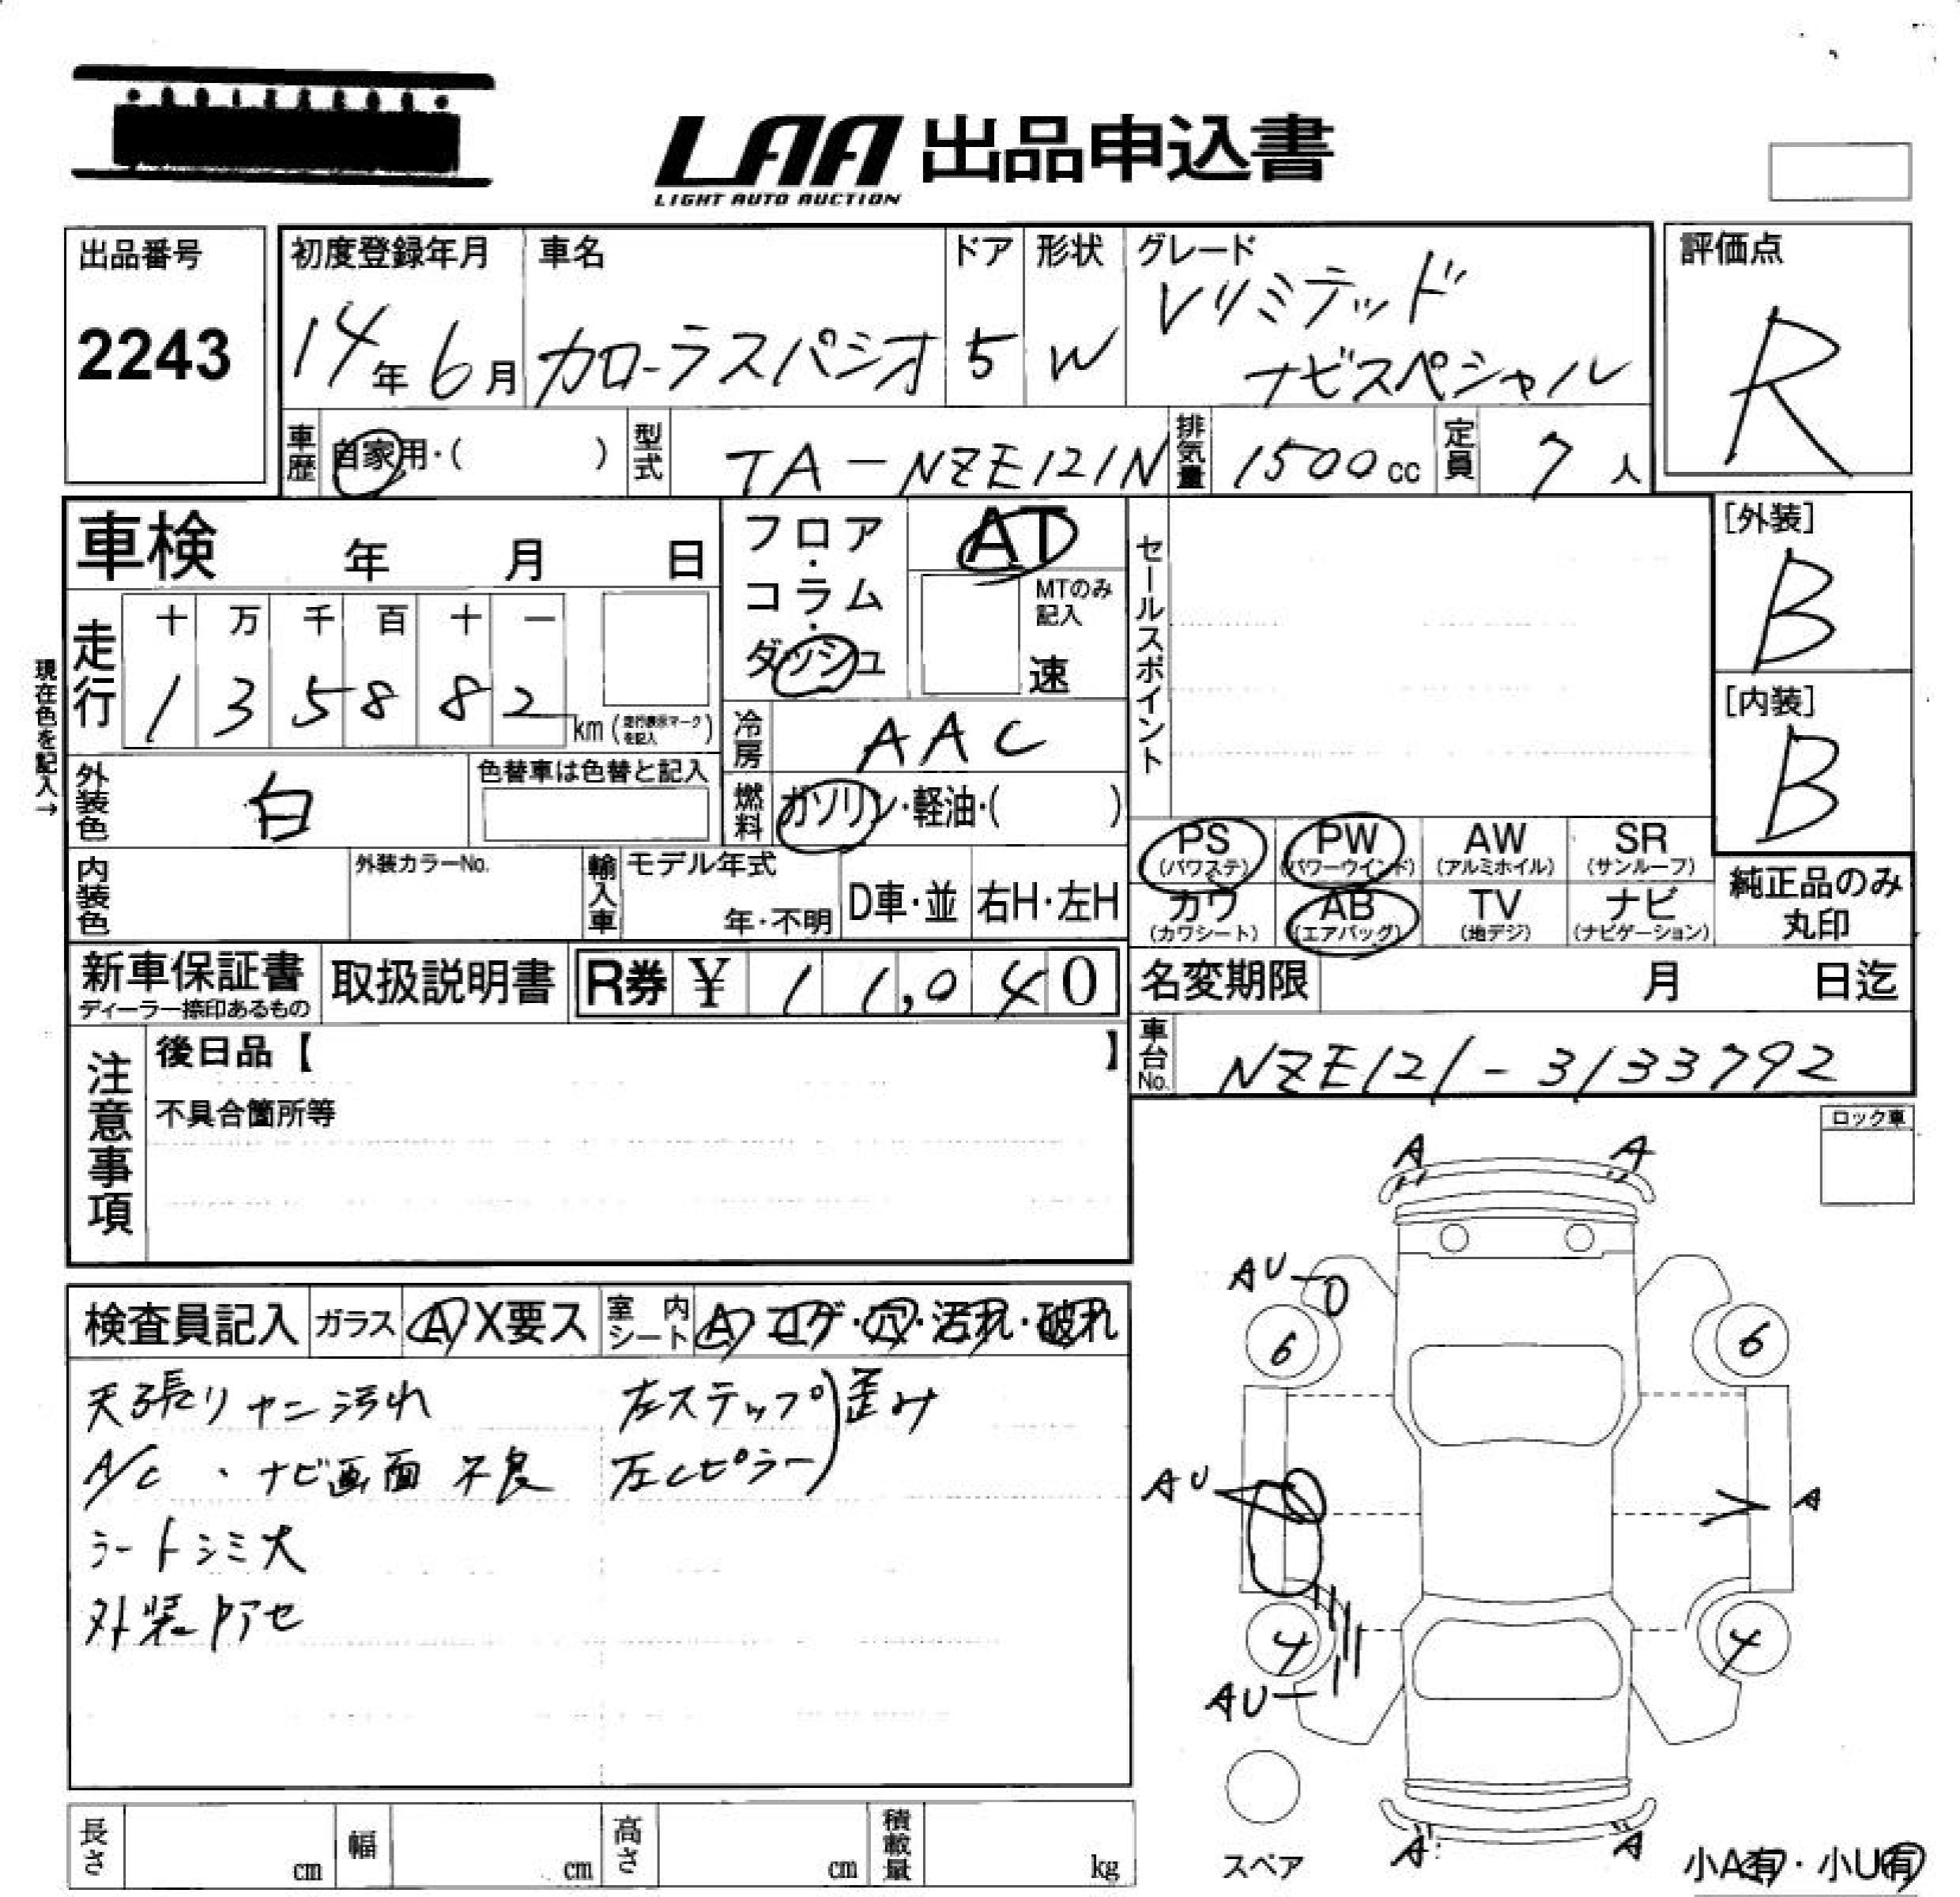 LAA 出品申込書
LIGHT AUTO AUCTION
出品番号
2243
初度登録年月
14年6月
車名
カローラスパシオ
ドア
5
形状
W
グレード
Vリミテッド
ナビスペシャル
評価点
R
車歴 自家用・( )
型式 TA-NZE121N
排気量 1500cc
定員 7人
車検 年 月 日
走行
十 万 千 百 十 一
1 3 5 8 8 2 km (走行表示マークを記入)
現在色を記入→
フロア・コラム・ダッシュ
AT
MTのみ記入
速
冷房 AAC
燃料 ガソリン・軽油・( )
セールスポイント
[外装]
B
[内装]
B
外装色 白
色替車は色替と記入
内装色
外装カラーNo.
輸入車
モデル年式
年・不明
D車・並
右H・左H
PS (パワステ)
PW (パワーウインド)
AW (アルミホイル)
SR (サンルーフ)
カワ (カワシート)
AB (エアバッグ)
TV (地デジ)
ナビ (ナビゲーション)
純正品のみ
丸印
新車保証書
ディーラー捺印あるもの
取扱説明書
R券 ¥ 11,040
名変期限 月 日迄
車台No. NZE121-3133792
注意事項
後日品【 】
不具合箇所等
ロック車
検査員記入
ガラス A X要ス
室内シート A コゲ・穴・汚れ・破れ
天張りヤニ汚れ
A/C・ナビ画面 不良
シートシミ大
外装アセ
左ステップ
左Cピラー
歪み
A A
AU
6 6
AU
A
4 4
AU
A A
スペア
小A有・小U有
長さ cm
幅 cm
高さ cm
積載量 kg